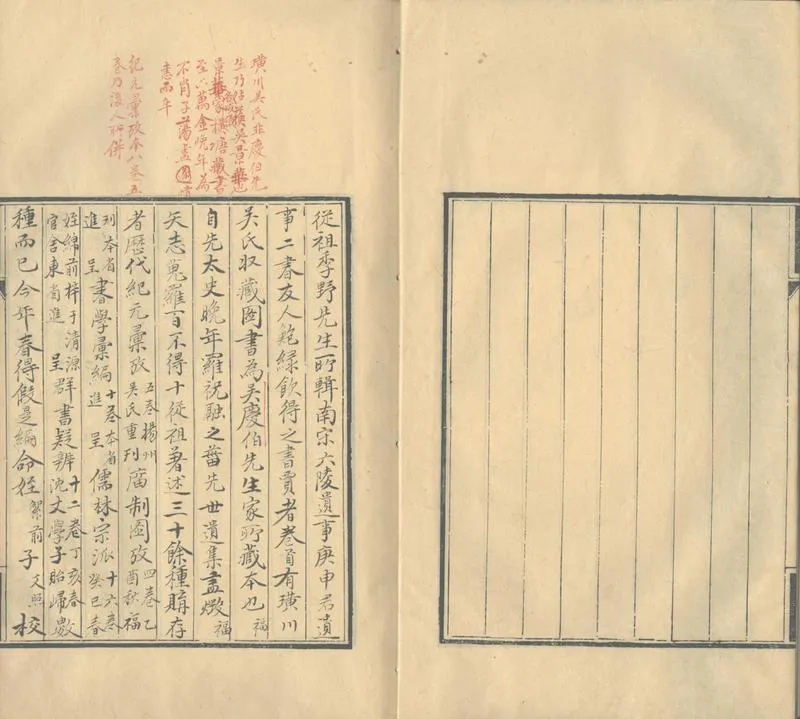 璜川吳氏非慶伯先
生乃估吳景也
景家橫塘藏書
至六萬金晚年為
不肖子蕩盡圖書
恚而卒
紀元彙攷本八卷五
卷乃後人所併
從祖季野先生所輯南宋六陵遺事庚申君遺
事二書友人鮑綠飲得之書賈者卷首有璜川
吳氏収藏圖書為吳慶伯先生家所藏本也福
自先太史晚年羅祝融之菑先世遺集盡燬福
矢志蒐羅百不得十從祖著述三十餘種購存
者歷代紀元彙攷五卷揚州吳氏重刊廟制圖攷四卷乙酉秋福
刊本省進呈書學彙編十卷本省進呈儒林宗派十六卷癸巳春
姪綿前梓于清源官舍東省進呈群書疑辨十二卷丁亥春沈文學子貽歸數
種而已今年春得假是編命姪絮前子文照校